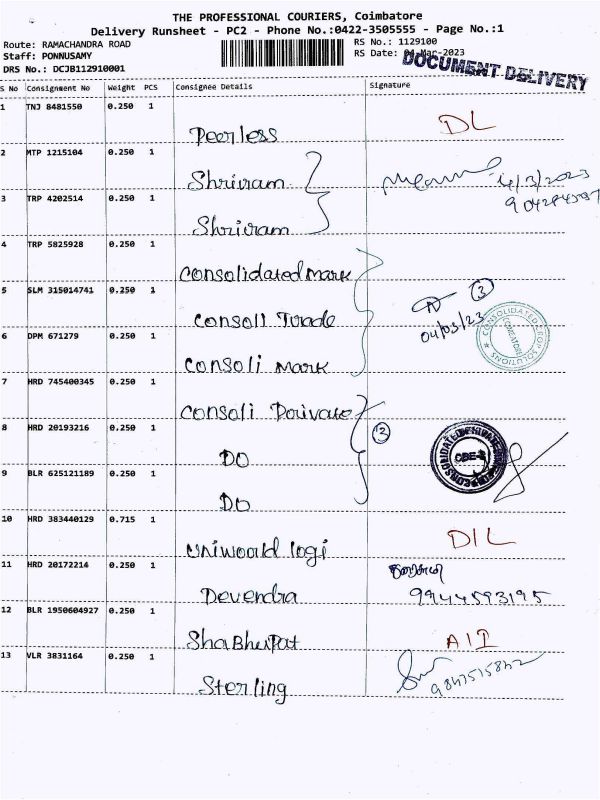 THE PROFESSIONAL COURIERS, Coimbatore
Delivery Runsheet - PC2 - Phone No.:0422-3505555 - Page No.:1
Route: RAMACHANDRA ROAD
RS No.: 1129100
Staff: PONNUSAMY
RS Date: 04-Mar-2023
DRS No.: DCJB112910001
DOCUMENT DELIVERY
S No Consignment No Weight PCS Consignee Details Signature
1 TNJ 8481550 0.250 1
Peerless DL
2 MTP 1215104 0.250 1
Shriram 4/3/2023
3 TRP 4202514 0.250 1
Shriram
4 TRP 5825928 0.250 1
Consolidated Mark
5 SLM 315014741 0.250 1
Consoli Trade 04/03/23 3
6 DPM 671279 0.250 1
Consoli Mark
CONSOLIDATED CROP SOLUTIONS
7 HRD 745400345 0.250 1
Consoli Private
8 HRD 20193216 0.250 1
DO
9 BLR 625121189 0.250 1
DO
CBE-2
10 HRD 383440129 0.715 1
Uniworld logi D/L
11 HRD 20172214 0.250 1
Devendra 9944593195
12 BLR 1950604927 0.250 1
13 VLR 3831164 0.250 1
Sterling